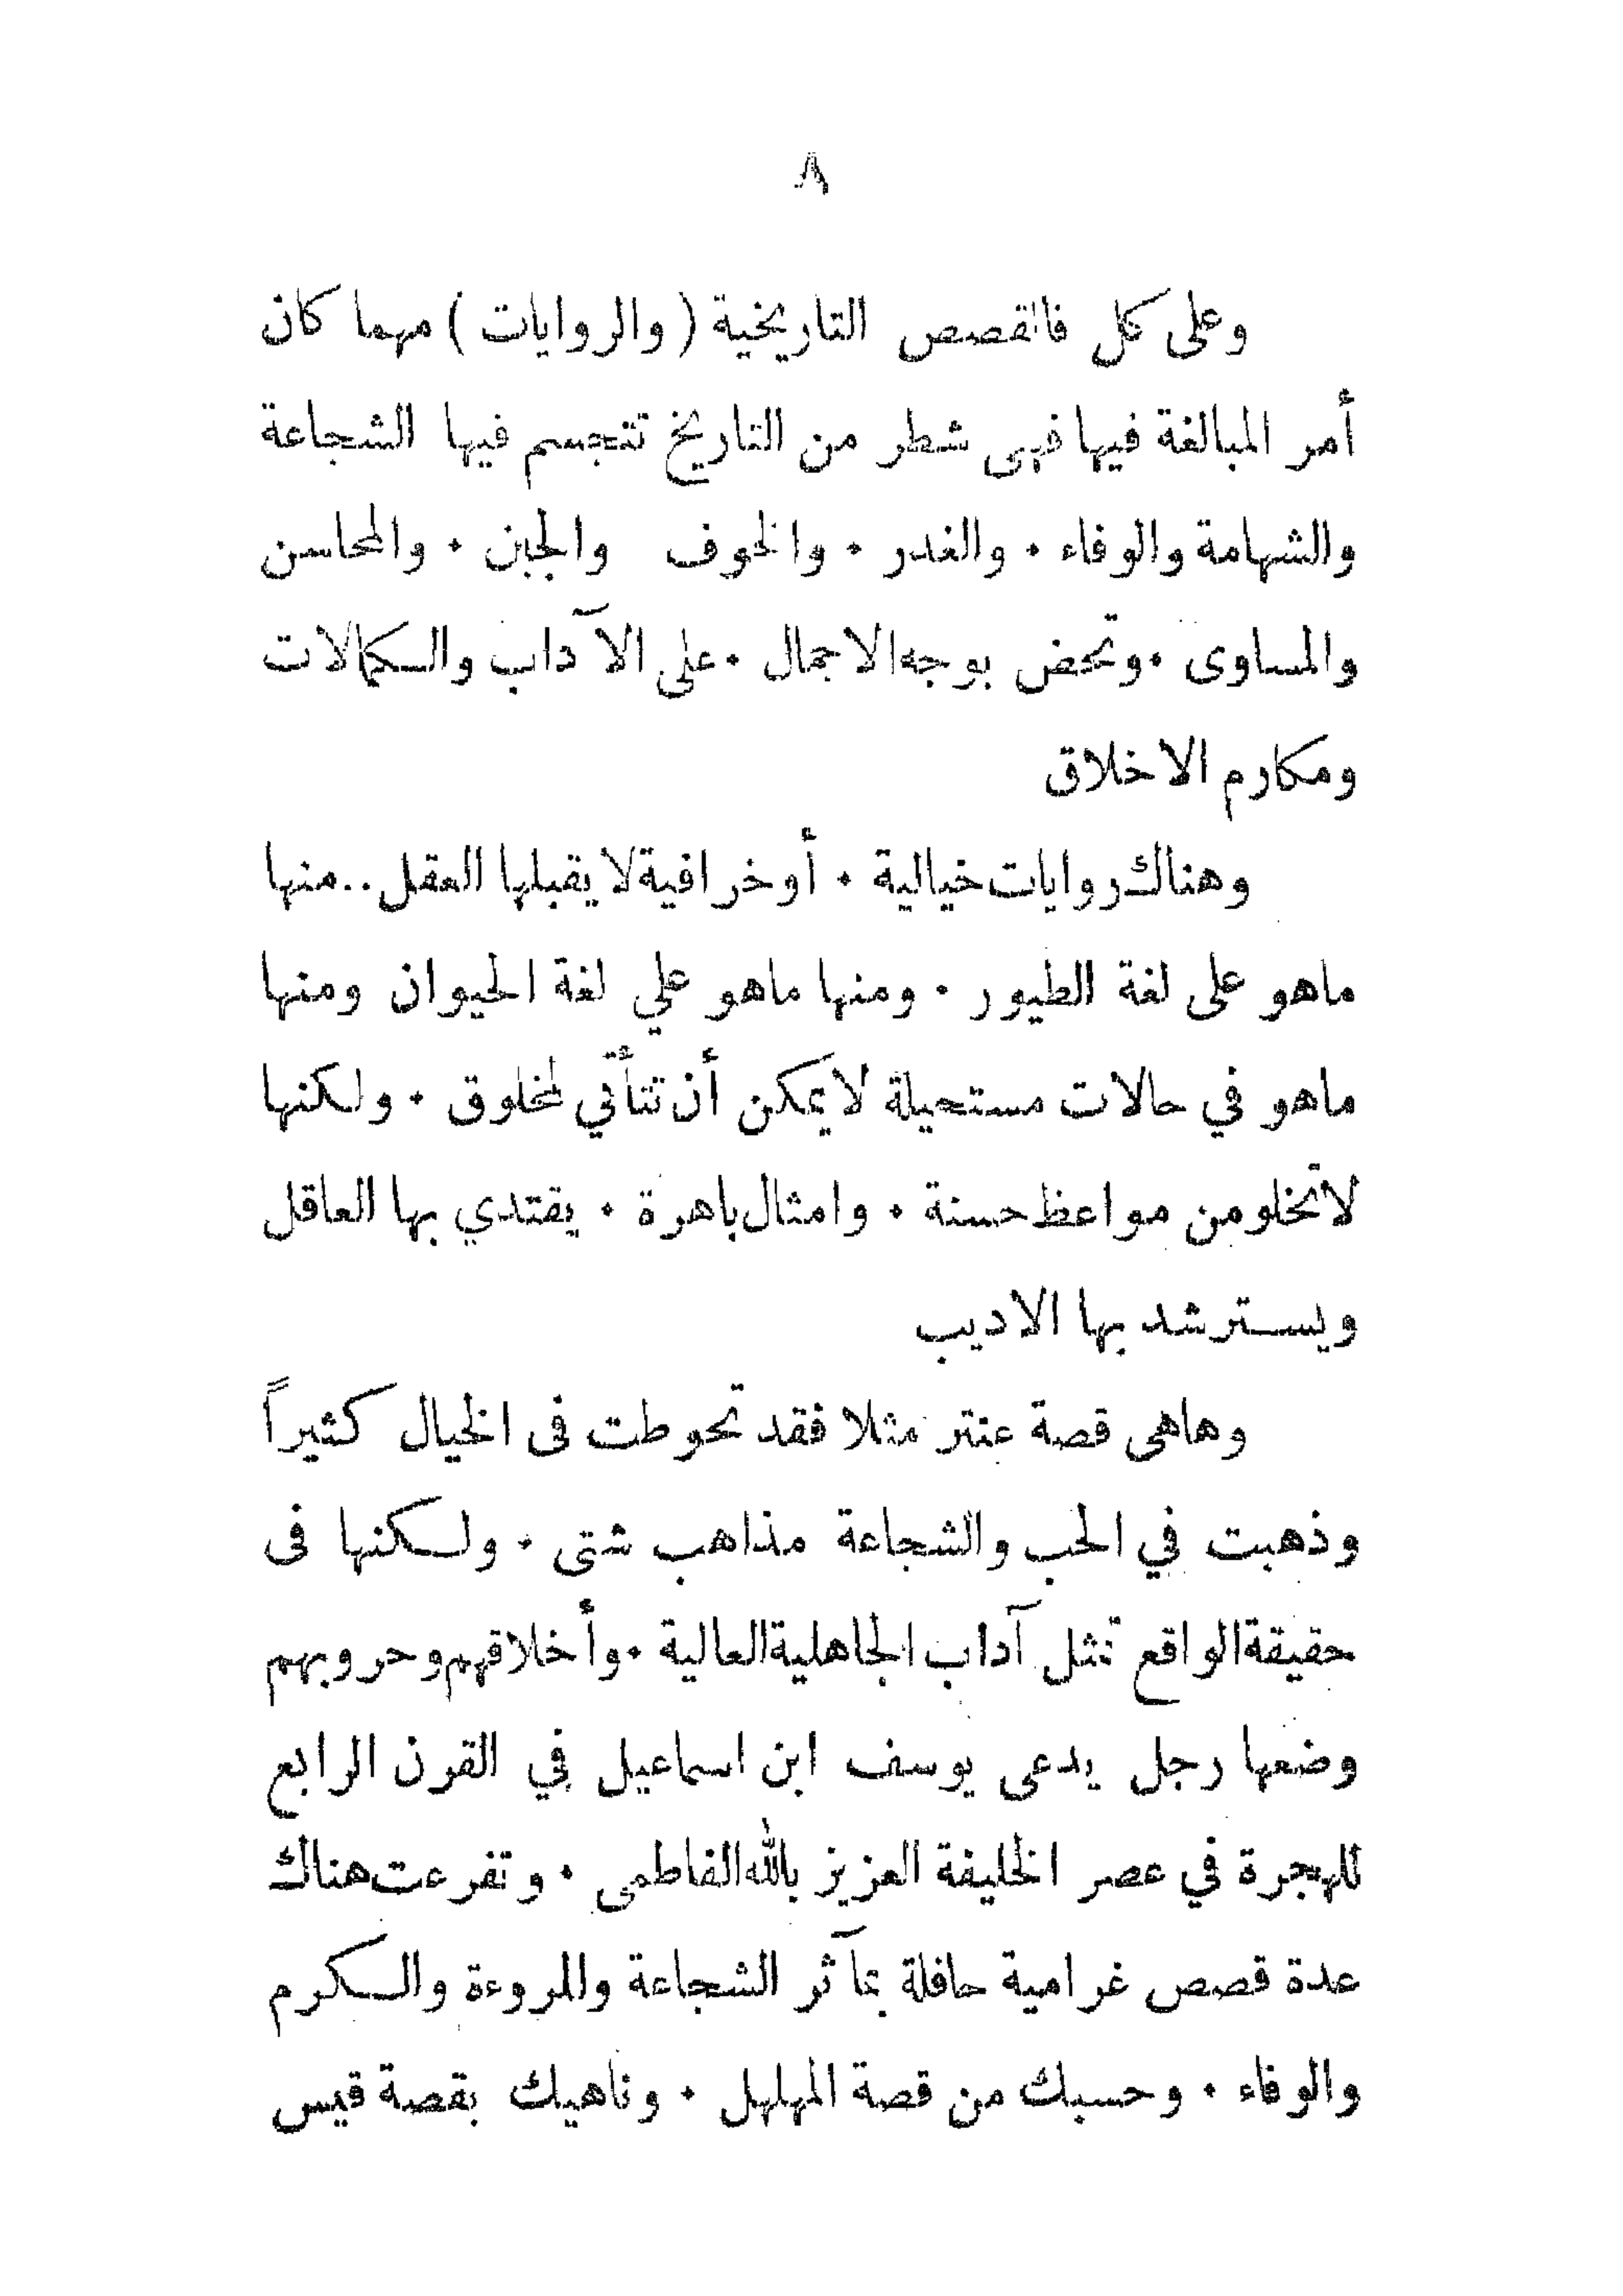 ٨
وعلى كل فالقصص التاريخية ( والروايات ) مهما كان
أمر المبالغة فيها فهى شطر من التاريخ تتجسم فيها الشجاعة
والشهامة والوفاء . والغدر . والخوف والجبن . والمحاسن
والمساوى . وتحض بوجه الاجمال . على الآداب والكمالات
ومكارم الاخلاق
وهناك روايات خيالية . أو خرافية لا يقبلها العقل .. منها
ماهو على لغة الطيور . ومنها ماهو علي لغة الحيوان ومنها
ماهو في حالات مستحيلة لا يمكن أن تتأتي لمخلوق . ولكنها
لا تخلو من مواعظ حسنة . وامثال باهرة . يقتدي بها العاقل
ويسترشد بها الاديب
وهاهى قصة عنتر مثلا فقد تحوطت فى الخيال كثيراً
وذهبت في الحب والشجاعة مذاهب شتى . ولكنها فى
حقيقة الواقع تمثل آداب الجاهلية العالية . وأخلاقهم وحروبهم
وضعها رجل يدعى يوسف ابن اسماعيل في القرن الرابع
للهجرة في عصر الخليفة العزيز بالله الفاطمى . وتفرعت هناك
عدة قصص غرامية حافلة بمآثر الشجاعة والمروءة والكرم
والوفاء . وحسبك من قصة المهلهل . وناهيك بقصة قيس